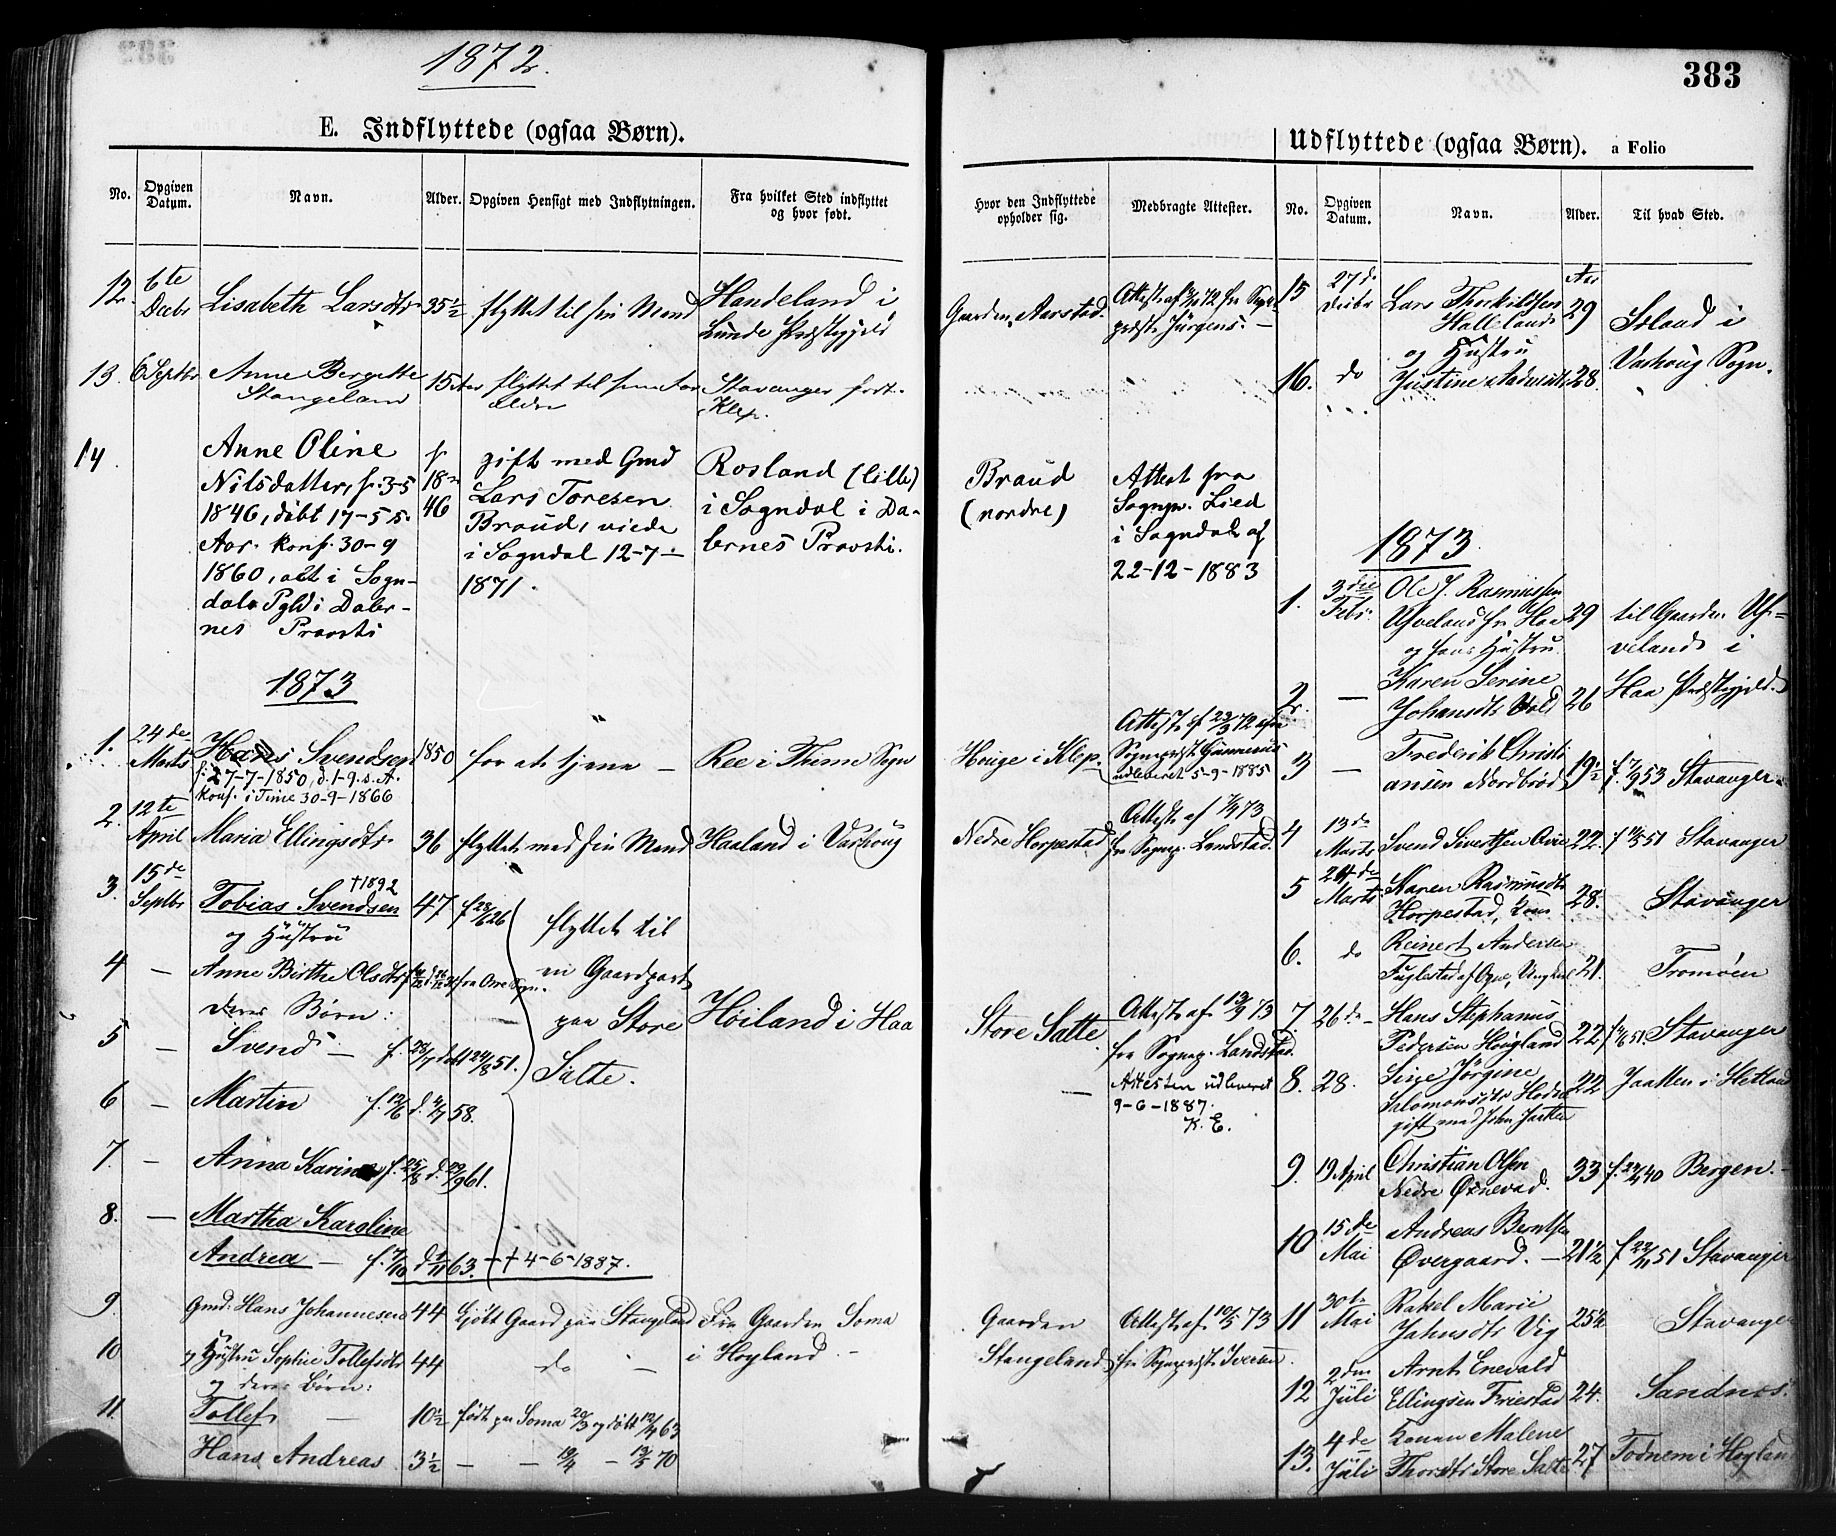 1872.
383
E. Indflyttede (ogsaa Børn).
No.
Opgiven Datum.
Navn.
Alder.
Opgiven Hensigt med Indflytningen.
Fra hvilket Sted indflyttet og hvor født.
12. 6te Decbr Lisabeth Larsdtr 35½ flyttet til sin Mand Handeland i
Lunde Præstegjeld
13. 6 Septbr Anne Bergitte 15 Aar flyttet til sine For Stavanger født
Stangeland ældre Klep.
14. Anne Oline f. gift med Gmd Rosland (lille)
Nilsdatter, f. 3-5 18 Lars Toresen i Sogndal i Da-
1846, døbt 17-5 s. 46 Braud, viede lernes Provsti.
Aar. konf. 30-9 i Sogndal 12-7
1860, alt i Sogn- 1871.
dals Pgld i Daler-
nes Provsti
1873
1. 24de Marts Hans Svendsen 1850 for at tjene Ree i Thime Sogn
f. 27-7-1850, d. 1-9 s. A.
konf. i Time 30-9-1866
2. 12te April Maria Ellingsdtr 36 flyttet med sin Mand Haaland i Varhoug
3. 15de Septbr Tobias Svendsen †1892 47 f 28/6 26 flyttet til
og Hustru
4 — Anne Birthe Olsdtr fra Orre Sogn. en Gaardpart
deres Børn: paa Store Høiland i Haa
5 — Svend — f. 28/7 døbt 24/8 51. Salte.
6 — Martin f. 12/6 d. 4/7 58.
7. — Anna Karine f. 25/8 d. 29/9 61.
8. — Martha Karoline
Andrea — f. 7/10 d 1/11 63. — † 4-6-1887.
9. Gmd: Hans Johannesen 44 Kjøbt Gaard paa Stangeland Fra Gaarden Soma
10 og Hustru Sophie Tollefsdtr 44 do — i Hoyland. —
og deres Børn:
11. Tollef — 10½ født paa Soma 20/3 og døbt 12/4 63
Hans Andreas 3½ — — 19/4 — 13/5 70
Udflyttede (ogsaa Børn). a Folio
Hvor den Indflyttede opholder sig.
Medbragte Attester.
No.
Opgiven Datum.
Navn.
Alder.
Til hvad Sted.
Gaarden Aarstad. Attest af 72 fra Sogne-
præst Jürgens. —
Braud Attest fra
(nordre) Sognepr. Lied
i Sogndal af
22-12-1883
Houge i Klep. Attest af 23/3 72 afra
Sognepræst Gunnerus
udleveret 5-9-1885
Nedre Horpestad Attest af 73
fra Sognep. Landstad.
Store Salte. Attest af 13/9 73
fra Sognep. Landstad.
— Attesten udleveret
9-6-1887.
K. E.
Gaarden Attest af 10/5 73
Stangeland fra Sognepræst Iversen.
15 27 de Decbr Lars Thorkildsen Aar 29 Island i
Halleland
og Hustru Varhoug Sogn.
16. do Justine 28.
1873.
1. 3die Febr. Ole J. Rasmussen 29 til Gaarden Ud-
Udveland fra Haa veland i
og hans Hustru
2. — Karen Serine 26 Haa Præstegjeld.
Johansdtr
3 — Frederik Christi 19½ f. 7/9 53 Stavanger
ansen Nordbrød
4 13de Marts Svend Sivertsen 22. f 51 Stavanger
5 24de Marts Karen Rasmusdtr 28. Stavanger
Horpestad,
6. do Reinert Andersen 21. Tromøen
Fuglestad af Ogne, Ungkarl
7. 26de Hans Stephanus 22 f 51. Stavanger
Pedersen Hougland
8. 28. Sirie Jørgine 22 Jaatten i Hetland
Salomonsdtr
gift med John Jaatten
9. 19 April Christian Olsen 33 f. 40 Bergen.
Nedre Øxnevad.
10 15de Mai Andreas Berntsen 21½ f 22/11 51 Stavanger
Øvergaard. —
11 30te Mai Rakel Marie 25½ Stavanger
Jahnsdtr Vig
12 2den Juli Arnt Enevald 24. Sandnes.
Ellingsen Friestad
13. 4de Juli Malene 27 Todnem i Hoyland
Thordtr Store Salte